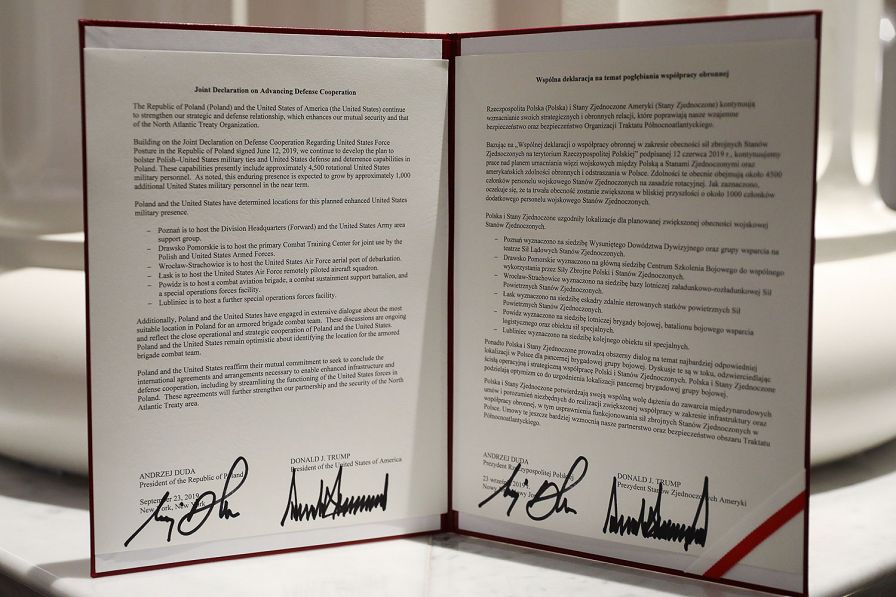 Joint Declaration on Advancing Defense Cooperation
The Republic of Poland (Poland) and the United States of America (the United States) continue
to strengthen our strategic and defense relationship, which enhances our mutual security and that
of the North Atlantic Treaty Organization.
Building on the Joint Declaration on Defense Cooperation Regarding United States Force
Posture in the Republic of Poland signed June 12, 2019, we continue to develop the plan to
bolster Polish-United States military ties and United States defense and deterrence capabilities in
Poland. These capabilities presently include approximately 4,500 rotational United States
military personnel. As noted, this enduring presence is expected to grow by approximately 1,000
additional United States military personnel in the near term.
Poland and the United States have determined locations for this planned enhanced United States
military presence.
– Poznań is to host the Division Headquarters (Forward) and the United States Army area
support group.
– Drawsko Pomorskie is to host the primary Combat Training Center for joint use by the
Polish and United States Armed Forces.
– Wrocław-Strachowice is to host the United States Air Force aerial port of debarkation.
– Łask is to host the United States Air Force remotely piloted aircraft squadron.
– Powidz is to host a combat aviation brigade, a combat sustainment support battalion, and
a special operations forces facility.
– Lubliniec is to host a further special operations forces facility.
Additionally, Poland and the United States have engaged in extensive dialogue about the most
suitable location in Poland for an armored brigade combat team. These discussions are ongoing
and reflect the close operational and strategic cooperation of Poland and the United States.
Poland and the United States remain optimistic about identifying the location for the armored
brigade combat team.
Poland and the United States reaffirm their mutual commitment to seek to conclude the
international agreements and arrangements necessary to enable enhanced infrastructure and
defense cooperation, including by streamlining the functioning of the United States forces in
Poland. These agreements will further strengthen our partnership and the security of the North
Atlantic Treaty area.
ANDRZEJ DUDA
President of the Republic of Poland
September 23, 2019
New York, New York
DONALD J. TRUMP
President of the United States of America
Wspólna deklaracja na temat pogłębiania współpracy obronnej
Rzeczpospolita Polska (Polska) i Stany Zjednoczone Ameryki (Stany Zjednoczone) kontynuują
wzmacnianie swoich strategicznych i obronnych relacji, które poprawiają nasze wzajemne
bezpieczeństwo oraz bezpieczeństwo Organizacji Traktatu Północnoatlantyckiego.
Bazując na „Wspólnej deklaracji o współpracy obronnej w zakresie obecności sił zbrojnych Stanów
Zjednoczonych na terytorium Rzeczypospolitej Polskiej” podpisanej 12 czerwca 2019 r., kontynuujemy
prace nad planem umacniania więzi wojskowych między Polską a Stanami Zjednoczonymi oraz
amerykańskich zdolności obronnych i odstraszania w Polsce. Zdolności te obecnie obejmują około 4500
członków personelu wojskowego Stanów Zjednoczonych na zasadzie rotacyjnej. Jak zaznaczono,
oczekuje się, że ta trwała obecność zostanie zwiększona w bliskiej przyszłości o około 1000 członków
dodatkowego personelu wojskowego Stanów Zjednoczonych.
Polska i Stany Zjednoczone uzgodniły lokalizacje dla planowanej zwiększonej obecności wojskowej
Stanów Zjednoczonych.
– Poznań wyznaczono na siedzibę Wysuniętego Dowództwa Dywizyjnego oraz grupy wsparcia na
teatrze Sił Lądowych Stanów Zjednoczonych.
– Drawsko Pomorskie wyznaczono na główną siedzibę Centrum Szkolenia Bojowego do wspólnego
wykorzystania przez Siły Zbrojne Polski i Stanów Zjednoczonych.
– Wrocław-Strachowice wyznaczono na siedzibę bazy lotniczej załadunkowo-rozładunkowej Sił
Powietrznych Stanów Zjednoczonych.
– Łask wyznaczono na siedzibę eskadry zdalnie sterowanych statków powietrznych Sił
Powietrznych Stanów Zjednoczonych.
– Powidz wyznaczono na siedzibę lotniczej brygady bojowej, batalionu bojowego wsparcia
logistycznego oraz obiektu sił specjalnych.
– Lubliniec wyznaczono na siedzibę kolejnego obiektu sił specjalnych.
Ponadto Polska i Stany Zjednoczone prowadzą obszerny dialog na temat najbardziej odpowiedniej
lokalizacji w Polsce dla pancernej brygadowej grupy bojowej. Dyskusje te są w toku, odzwierciedlając
ścisłą operacyjną i strategiczną współpracę Polski i Stanów Zjednoczonych. Polska i Stany Zjednoczone
podzielają optymizm co do uzgodnienia lokalizacji pancernej brygadowej grupy bojowej.
Polska i Stany Zjednoczone potwierdzają swoją wspólną wolę dążenia do zawarcia międzynarodowych
umów i porozumień niezbędnych do realizacji zwiększonej współpracy w zakresie infrastruktury oraz
współpracy obronnej, w tym usprawnienia funkcjonowania sił zbrojnych Stanów Zjednoczonych w
Polsce. Umowy te jeszcze bardziej wzmocnią nasze partnerstwo oraz bezpieczeństwo obszaru Traktatu
Północnoatlantyckiego.
ANDRZEJ DUDA
Prezydent Rzeczypospolitej Polskiej
23 września 2019 r.
Nowy Jork, Nowy Jork
DONALD J. TRUMP
Prezydent Stanów Zjednoczonych Ameryki